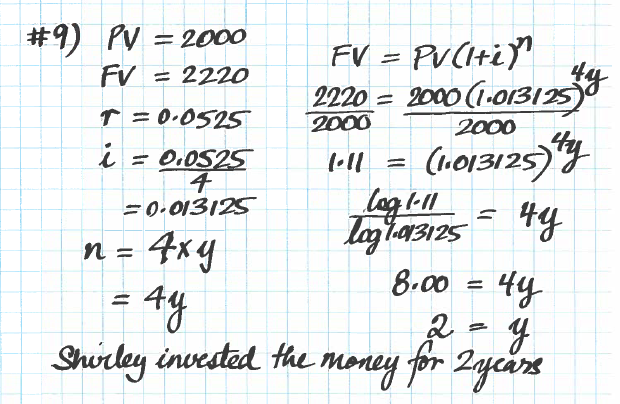 #9) PV = 2000
FV = 2220
r = 0.0525
i = 0.0525
4
= 0.013125
n = 4xy
= 4y
FV = PV(1+i)^n
2220 = 2000(1.013125)^4y
2000 2000
1.11 = (1.013125)^4y
log 1.11 = 4y
log 1.013125
8.00 = 4y
2 = y
Shirley invested the money for 2 years